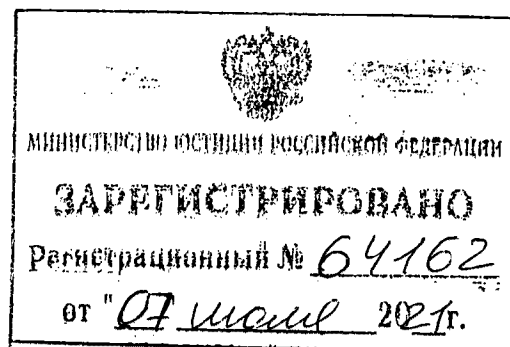 МИНИСТЕРСТВО ЮСТИЦИИ РОССИЙСКОЙ ФЕДЕРАЦИИ
ЗАРЕГИСТРИРОВАНО
Регистрационный № 64162
от "07 июля 2021г.